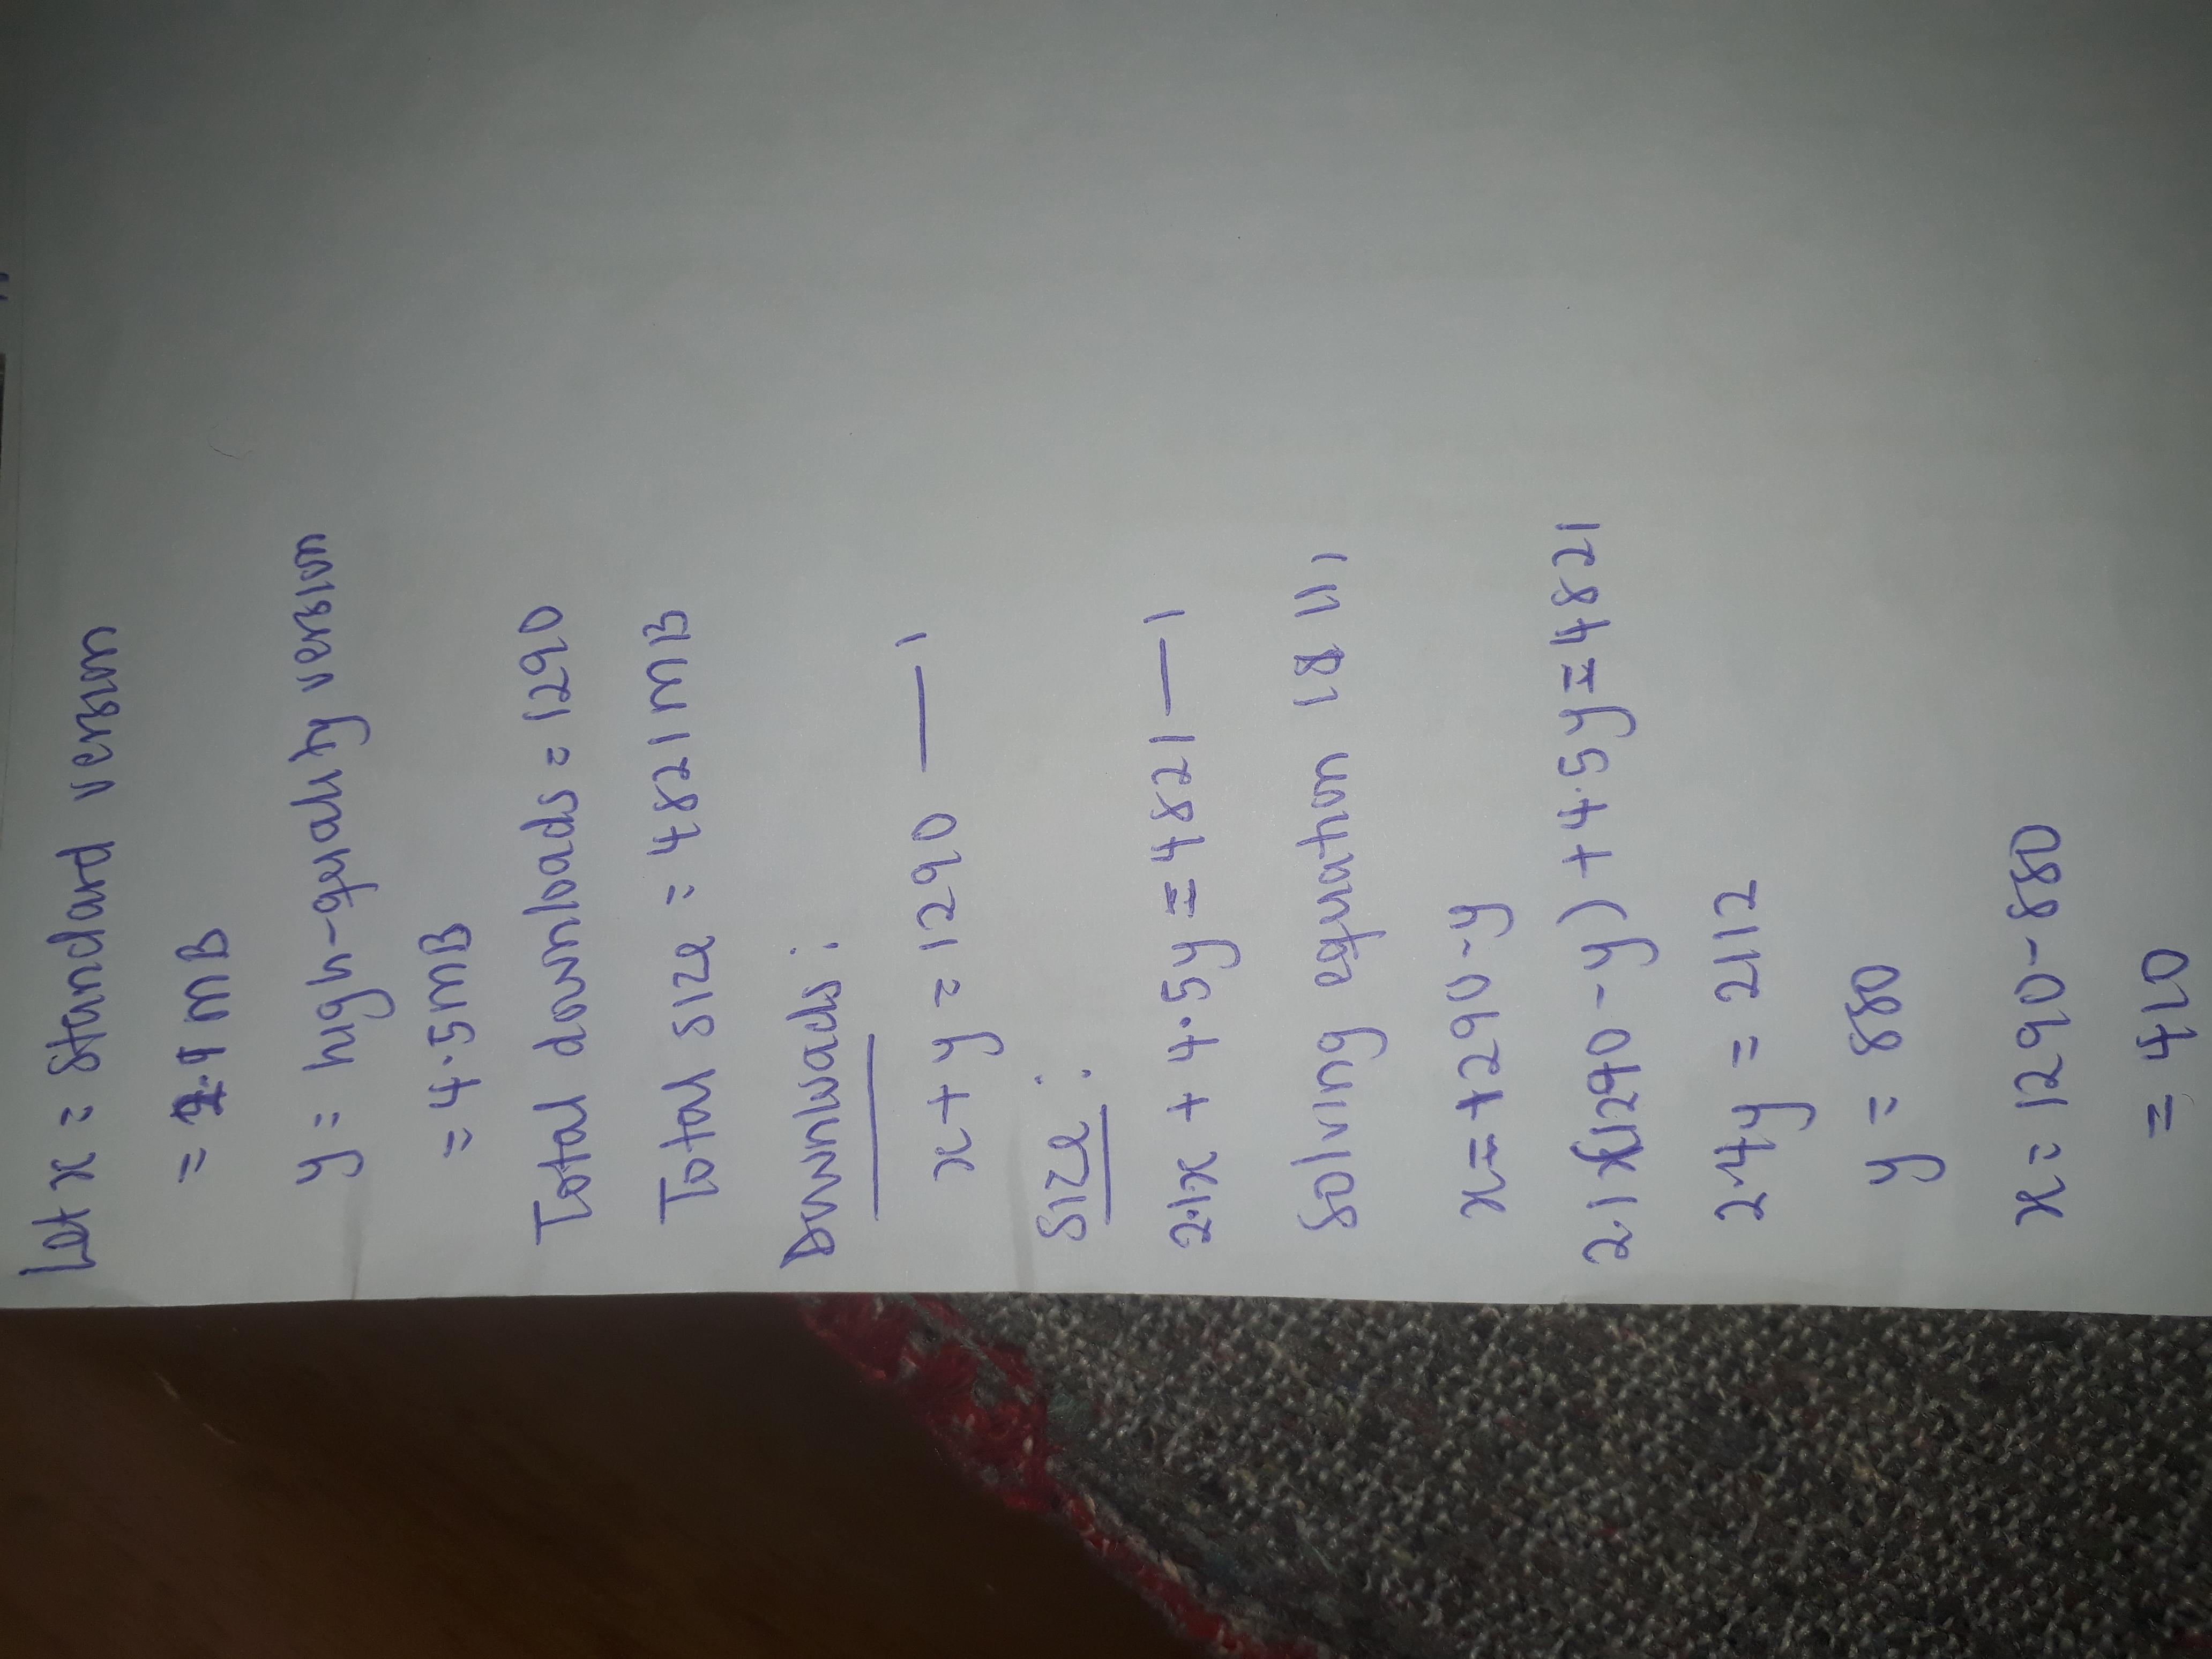 Let x = standard version
= 2.1 MB
y = high-quality version
= 4.5MB
Total downloads = 1290
Total size = 4821 MB
Downloads:
x + y = 1290 — 1
size:
2.1x + 4.5y = 4821 — 1
Solving equation 1 & 11,
x = 1290 - y
2.1 (1290 - y) + 4.5y = 4821
2.4y = 2112
y = 880
x = 1290 - 880
= 410